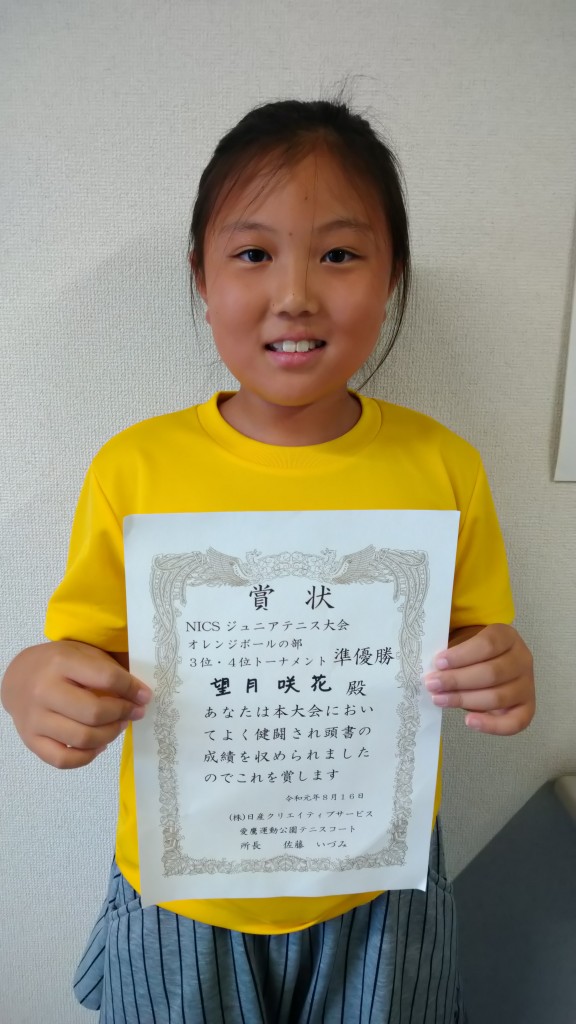 賞状
NICS ジュニアテニス大会
オレンジボールの部
3位・4位トーナメント 準優勝
望月咲花 殿
あなたは本大会におい
てよく健闘され頭書の
成績を収められました
のでこれを賞します
令和元年8月16日
(株)日産クリエイティブサービス
愛鷹運動公園テニスコート
所長 佐藤 いづみ